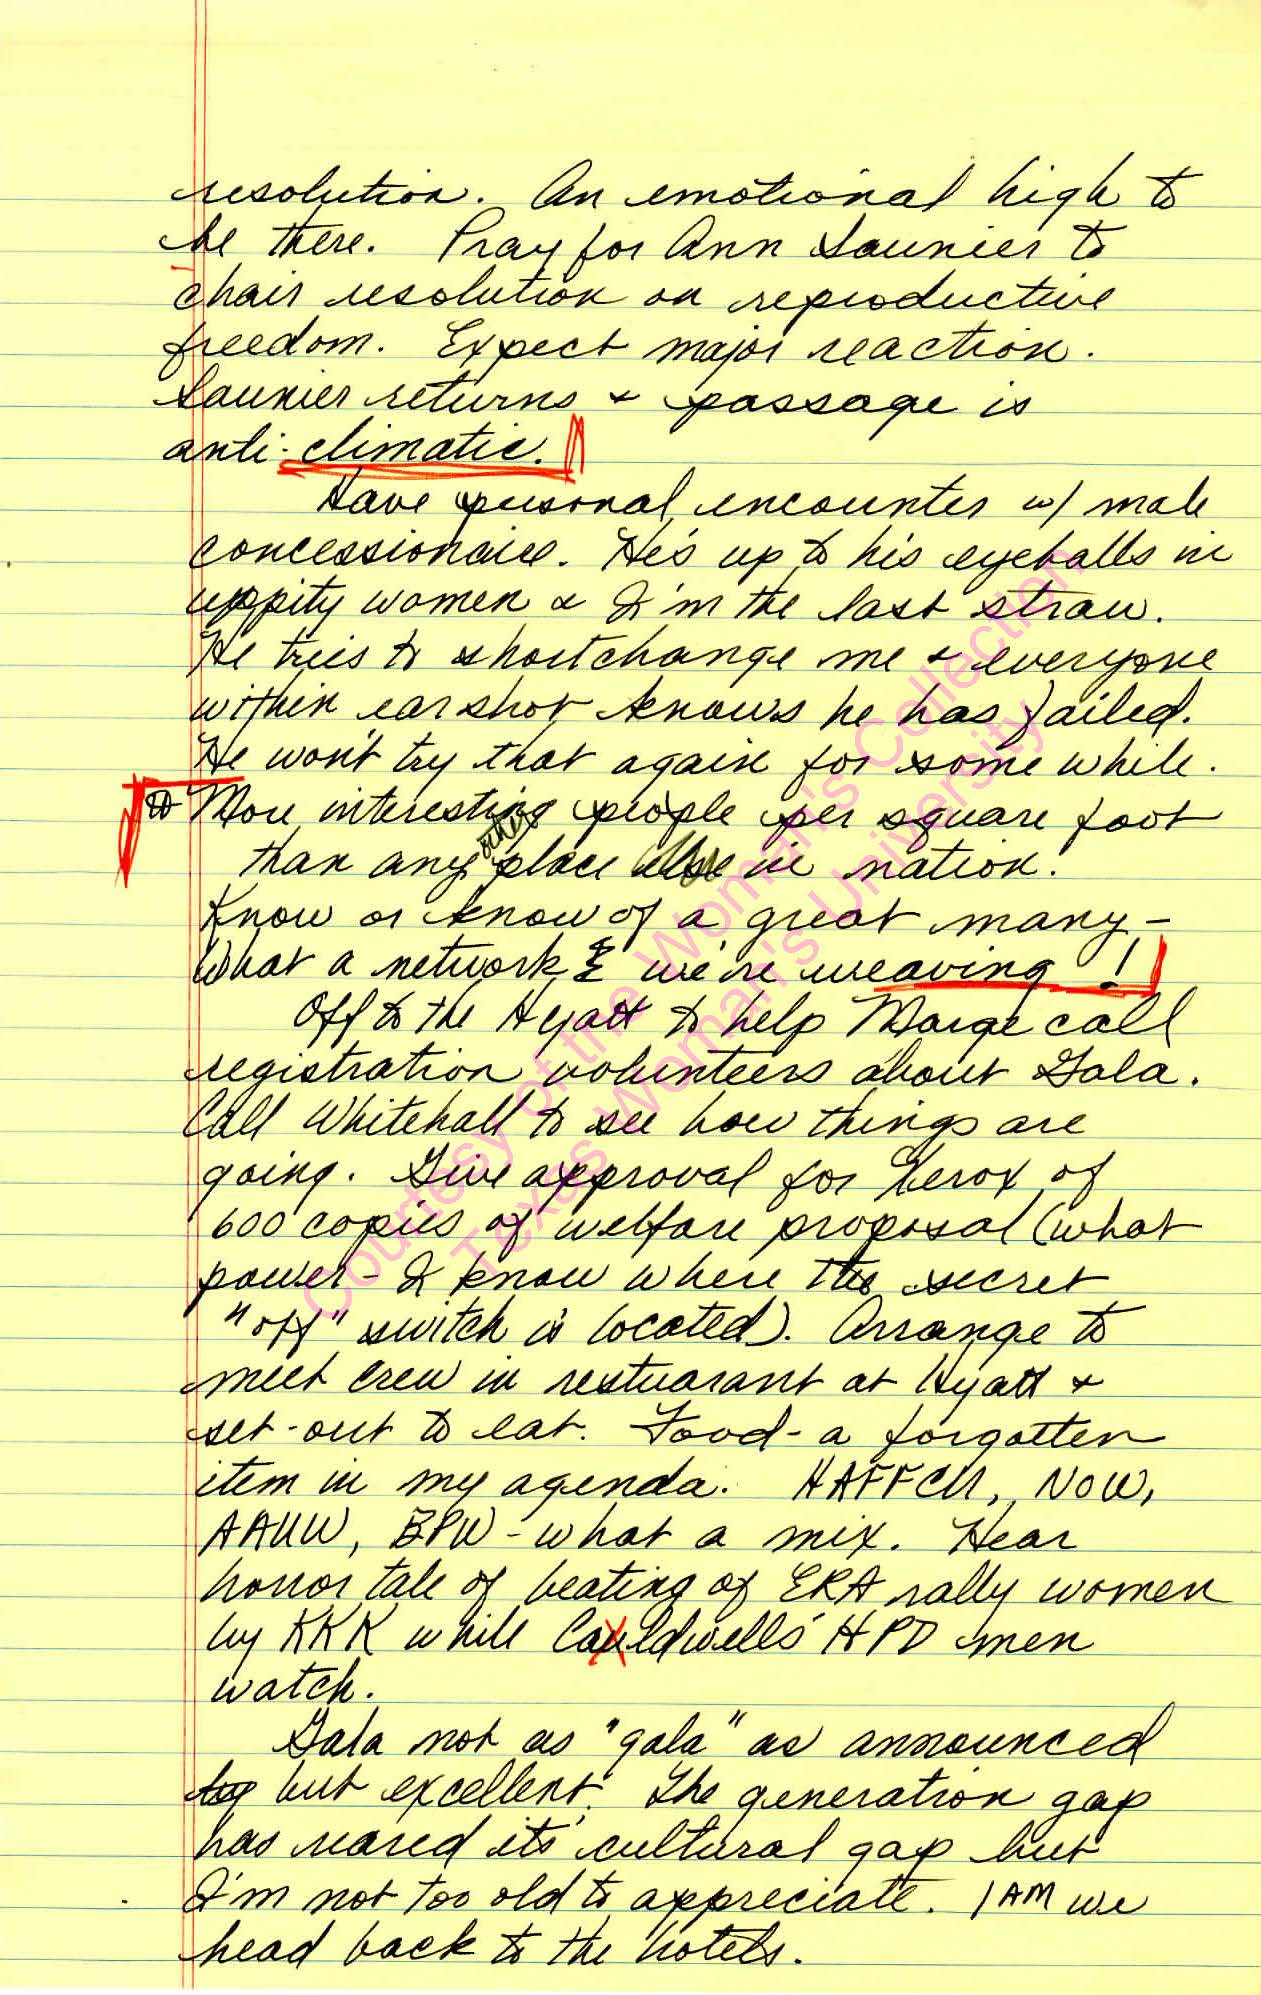 resolution. An emotional high to
be there. Pray for Ann Saunier to
chair resolution on reproductive
freedom. Expect major reaction.
Saunier returns & passage is
anti-climatic.
Have personal encounter w/ male
concessionaire. He's up to his eyeballs in
uppity women & I'm the last straw.
He tries to shortchange me & everyone
within earshot knows he has failed.
He won't try that again for some while.
More interesting people per square foot
than any other place in nation.
Know or know of a great many -
What a network we're weaving!
Off to the Hyatt to help Marge call
registration volunteers about Gala.
Call Whitehall to see how things are
going. Give approval for Xerox of
600 copies of welfare proposal (what
power - I know where the secret
"off" switch is located). Arrange to
meet crew in restuarant at Hyatt &
set-out to eat. Food - a forgotten
item in my agenda. HAFFCM, NOW,
AAUW, BPW - what a mix. Hear
horror tale of beating of ERA rally women
by KKK while Caldwells' HPD men
watch.
Gala not as "gala" as announced
but excellent. The generation gap
has reared its' cultural gap but
I'm not too old to appreciate. 1 AM we
head back to the hotels.
Courtesy of the Woman's Collection
Texas Woman's University